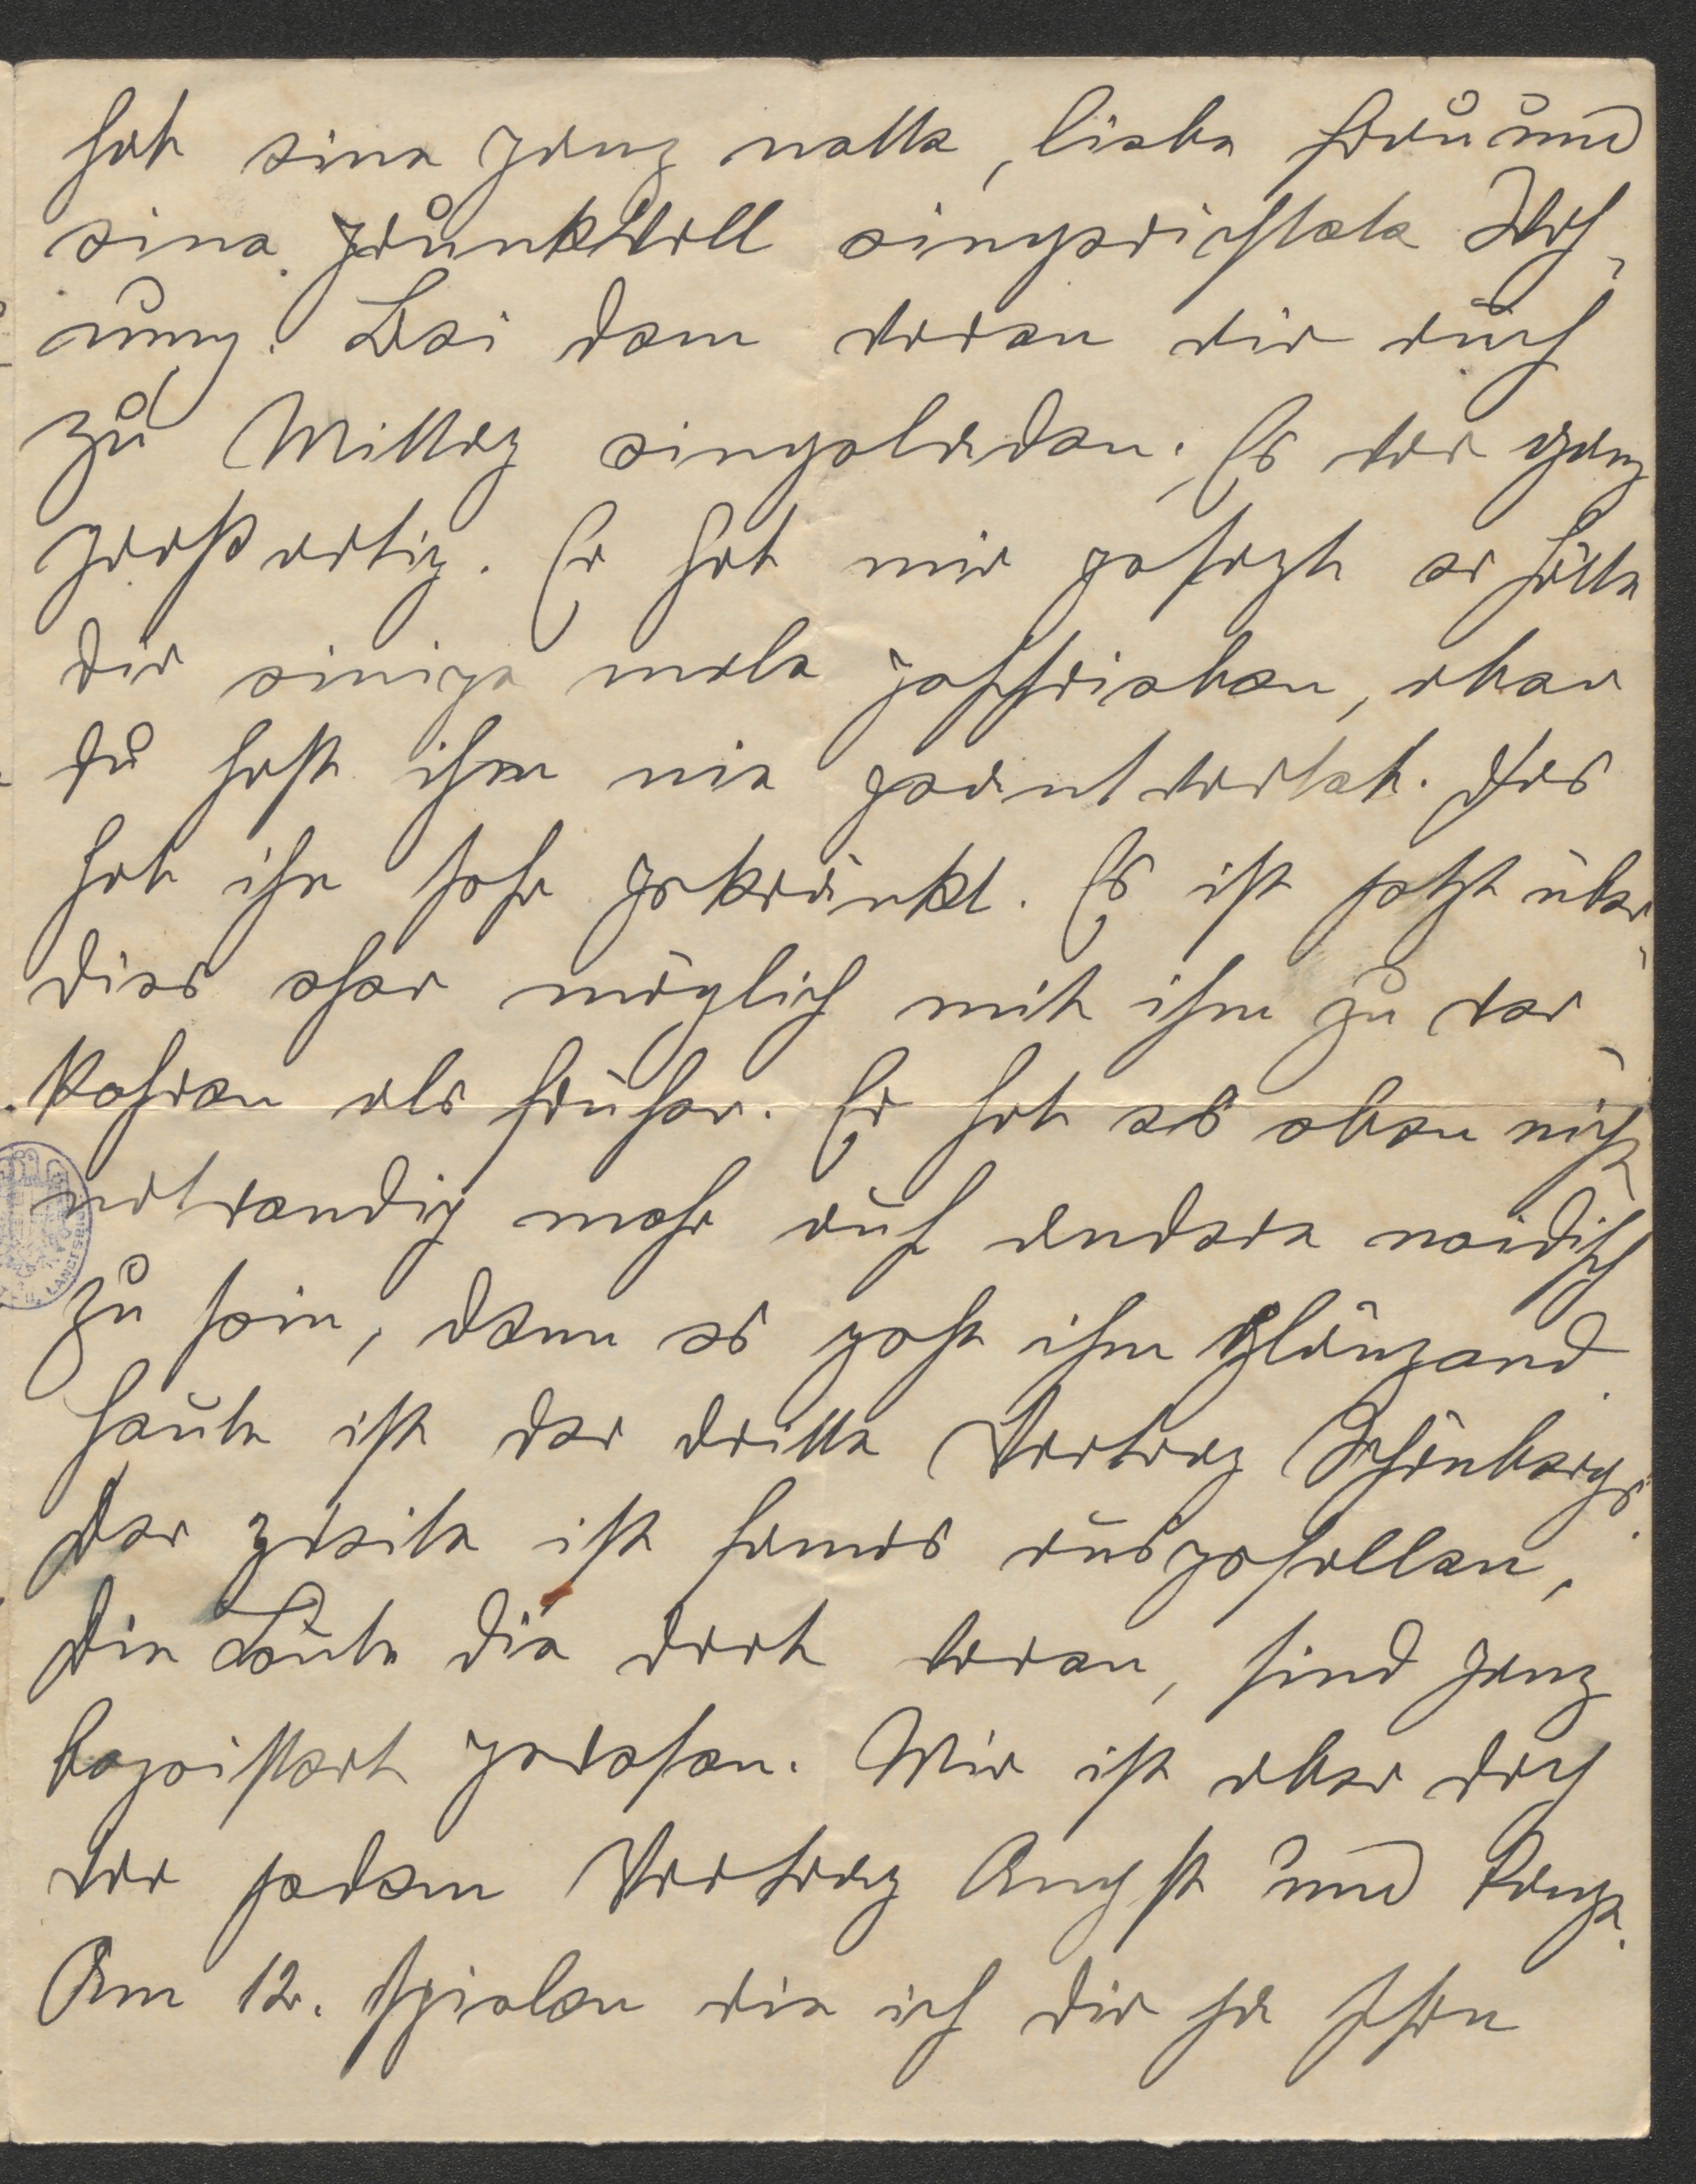 hat eine ganz nette, liebe Frau und
eine prunkvoll eingerichtete Woh-
nung. Bei dem waren wir auch
zu Mittag eingeladen. Es war ganz
großartig. Er hat mir gesagt er hätte
dir einige male geschrieben, aber
du hast ihm nie geantwortet. Das
hat ihn sehr gekränkt. Es ist jetzt über-
dies eher möglich mit ihm zu ver-
kehren als früher. Er hat es eben nicht
notwendig mehr auf andere neidisch
zu sein, denn es geht ihm glänzend.
Heute ist der dritte Vortrag Schönbergs.
Der zweite ist famos ausgefallen,
die Leute die dort waren, sind ganz
begeistert gewesen. Mir ist aber doch
vor jedem Vortrag Angst und bange.
Am 12. spielen wie ich dir ja schon